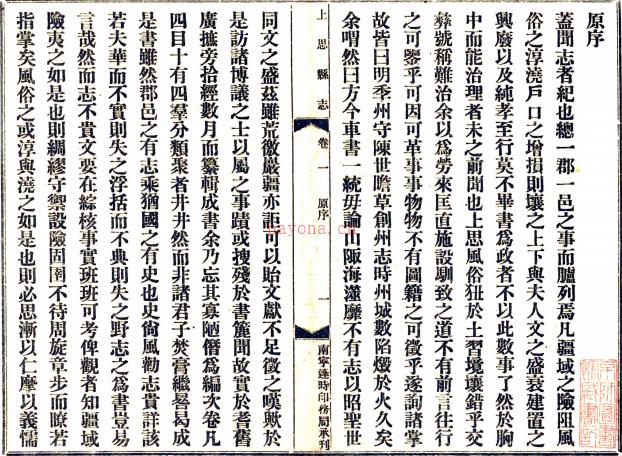 原序
蓋聞志者紀也總一郡一邑之事而臚列焉凡疆域之險阻風
俗之淳澆戶口之增損則壤之上下與夫人文之盛衰建置之
興廢以及純孝至行莫不畢書爲政者不以此數事了然於胸
中而能治理者未之前聞也上思風俗狃於土習境壤錯乎交
彝號稱難治余以爲勞來匡直施設馴致之道不有前言往行
之可鑒乎可因可革事事物物不有圖籍之可徵乎遂詢諸掌
故皆曰明季州守陳世瞻草創州志時州城數陷燬於火久矣
余喟然曰方今車書一統毋論山陬海澨靡不有志以昭聖世
上思縣志
卷一
原序
一
南寧達時印務局承刊
同文之盛茲雖荒徼嚴疆亦詎可以貽文獻不足徵之嘆歟於
是訪諸博議之士以屬之事蹟或搜殘於書簏聞故實於耆舊
廣摭旁拾經數月而纂輯成書余乃忘其寡陋僭爲編次卷凡
四目十有四羣分類聚者井井然而非諸君子焚膏繼晷曷成
是書雖然郡邑之有志乘猶國之有史也史尙風勸志貴詳該
若夫華而不實則失之浮括而不典則失之野志之爲書豈易
言哉然而志不貴文要在綜核事實班班可考俾觀者知疆域
險夷之如是也則綢繆守禦設險固圉不待周旋章步而瞭若
指掌矣風俗之或淳與澆之如是也則必思漸以仁摩以義懦
hayona.cn